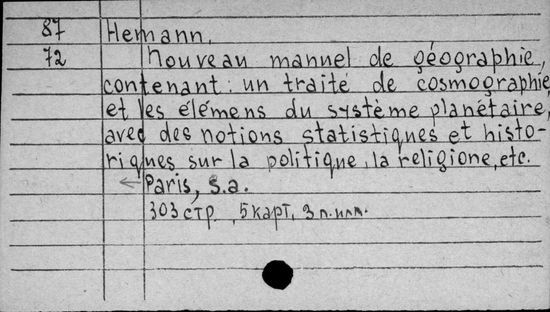 87 Hemann.
72 Nouveau manuel de géographie,
contenant: un traité de cosmographie
et les élémens du système planétaire,
avec des notions statistiques et histo-
riques sur la politique, la religione, etc.
← Paris, s.a.
303 стр., 5 карт, 3 л. илл.